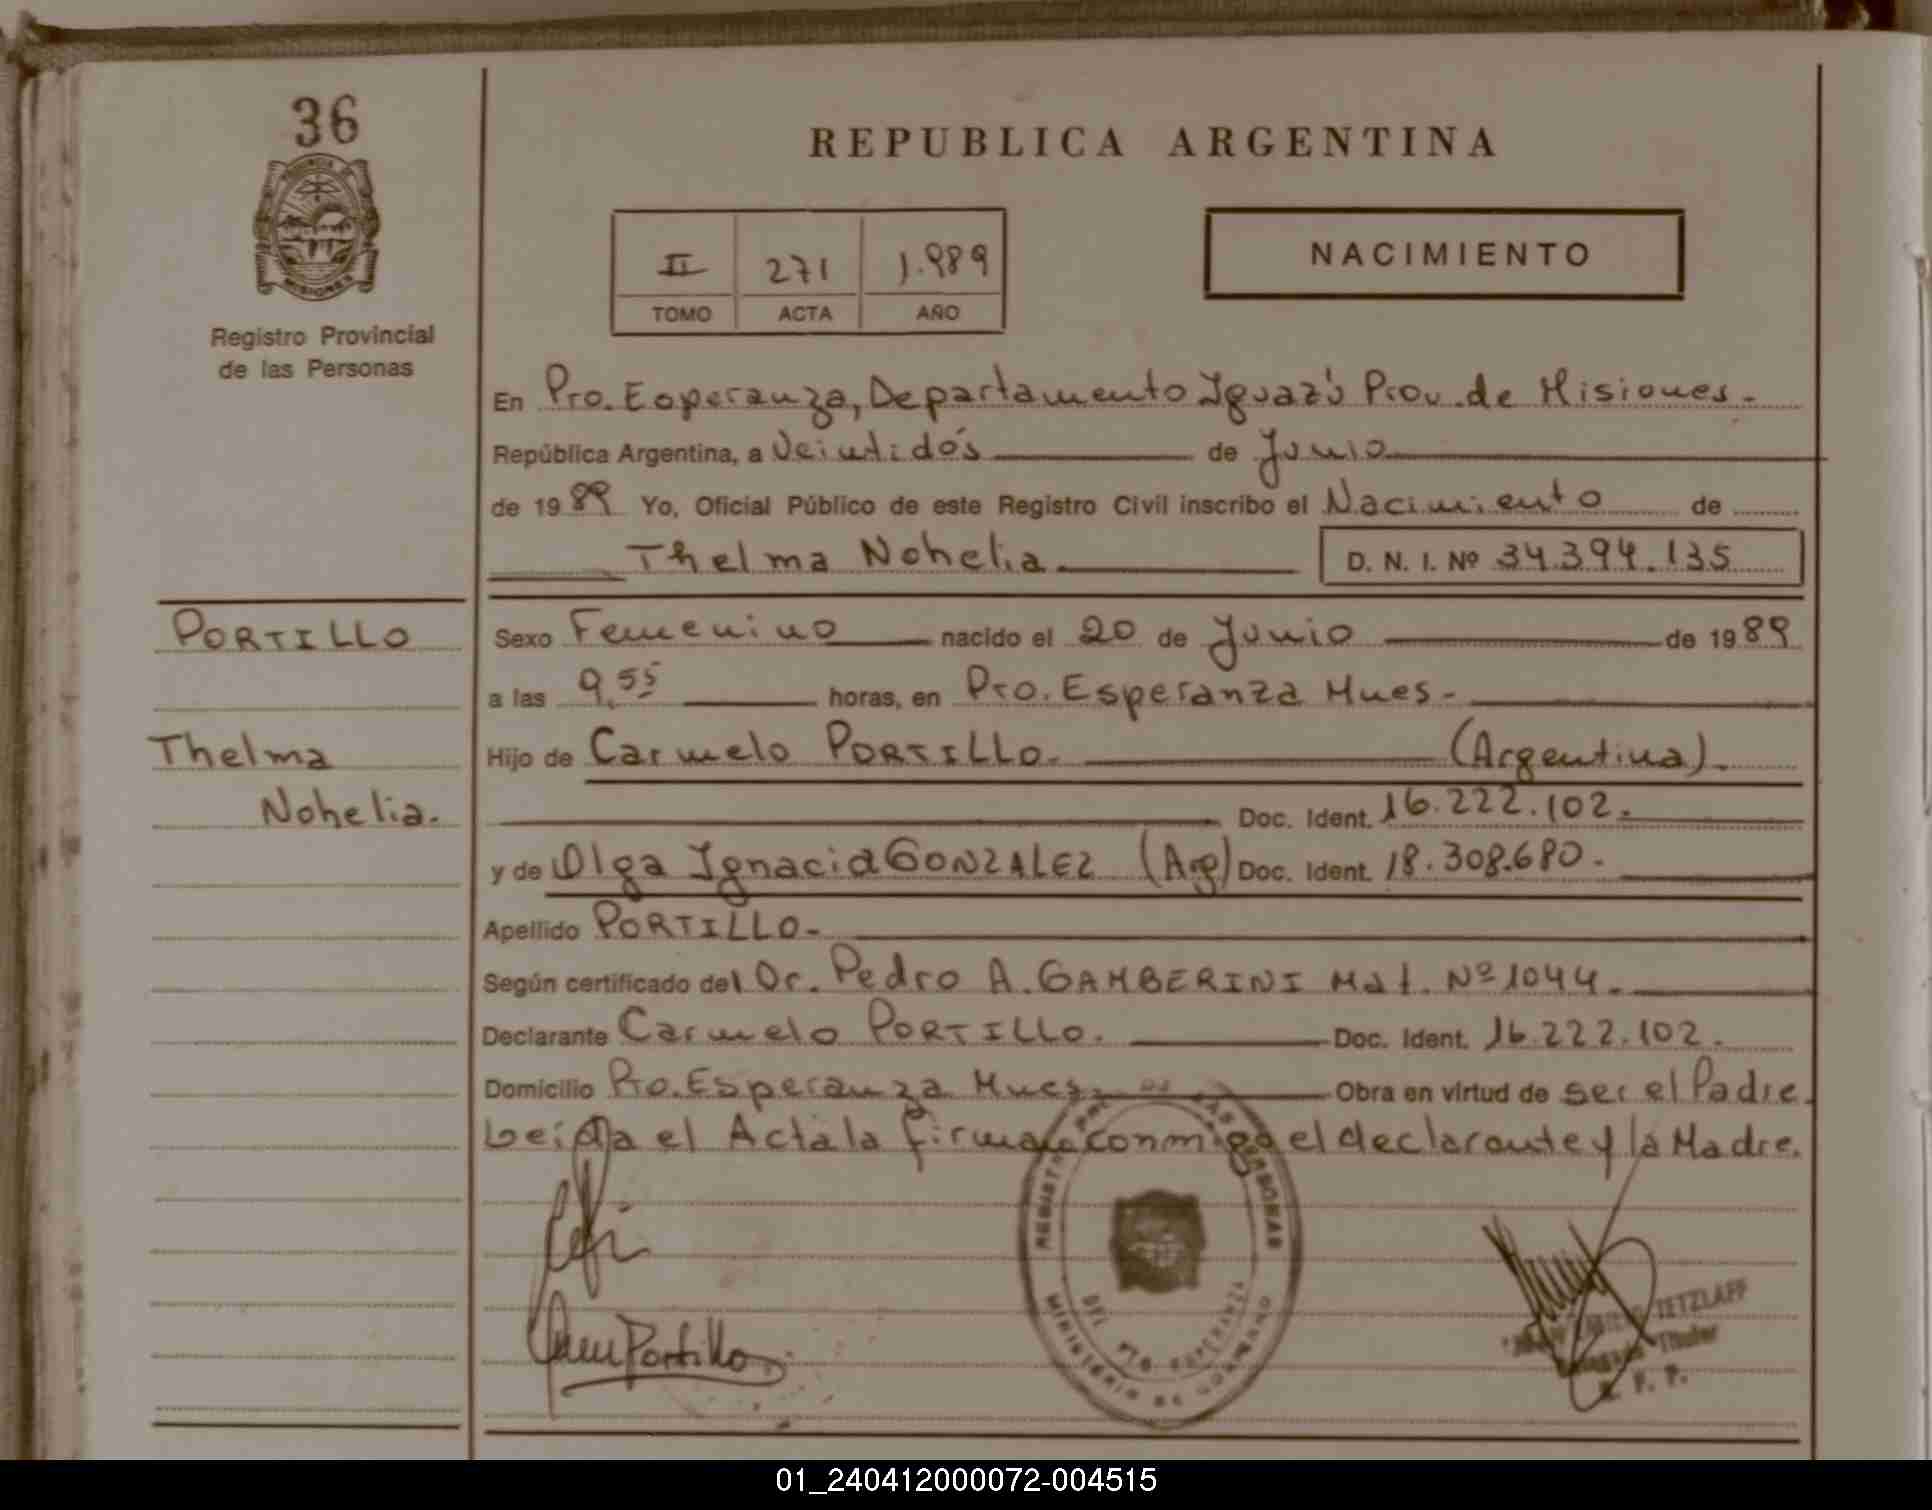 36
REPUBLICA ARGENTINA
PROVINCIA DE MISIONES
Registro Provincial
de las Personas
II 271 1.989
TOMO ACTA AÑO
NACIMIENTO
En Pto. Esperanza, Departamento Iguazú Prov. de Misiones.-
República Argentina, a Veintidós de Junio
de 1989 Yo, Oficial Público de este Registro Civil inscribo el Nacimiento de
Thelma Nohelia. D. N. I. Nº 34.394.135
PORTILLO
Thelma
Nohelia.
Sexo Femenino nacido el 20 de Junio de 1989
a las 9,55 horas, en Pto. Esperanza Mnes.-
Hijo de Carmelo PORTILLO. (Argentina).
Doc. Ident. 16.222.102.
y de Olga Ignacia GONZALEZ (Arg) Doc. Ident. 18.308.680.
Apellido PORTILLO.-
Según certificado del Dr. Pedro A. GAMBERINI Mat. Nº 1044.
Declarante Carmelo PORTILLO. Doc. Ident. 16.222.102.
Domicilio Pto. Esperanza Mnes. Obra en virtud de ser el Padre.
Leída el Acta la firman conmigo el declarante y la Madre.
REGISTRO DE LAS PERSONAS
DEL PTO. ESPERANZA
MINISTERIO DE GOBIERNO
Portillo
TETZLAFF
Titular
R. P. P.
01_240412000072-004515